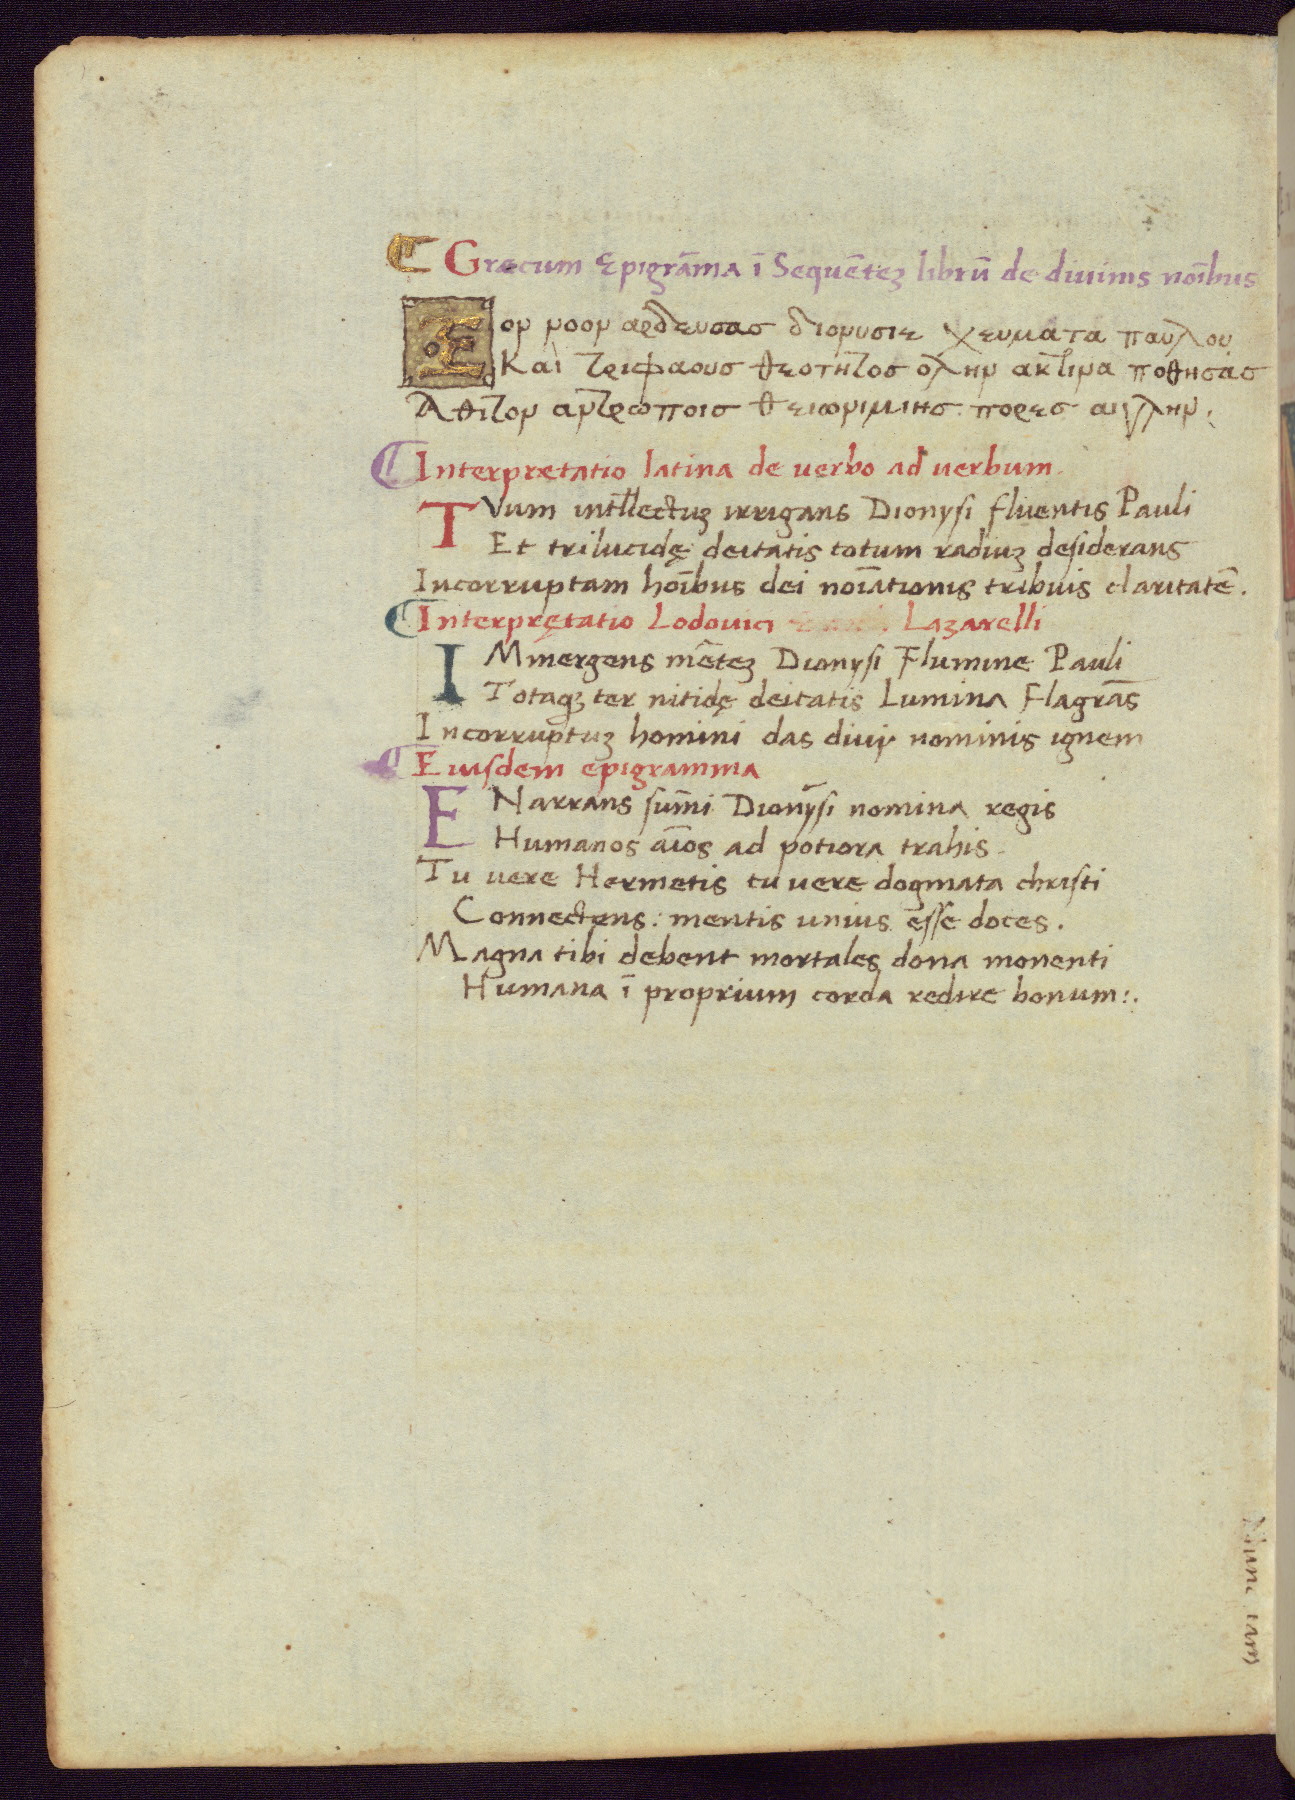 Gręcum Epigrāma ī Sequētez librū de diuinis noībus
Εον νοον αρδευσας διονυσιε χευματα παυλου
Και τριφαους θεοτητος ολην ακτινα ποθησας
Αθιτον αντρωποις θειωνιμιης πορες αιγλην.
Interpretatio latina de verbo ad verbum.
TVum intllectuz irrigans Dionysi fluentis Pauli
Et trilucidę deitatis totum radiuz desiderans
Incorruptam hoībus dei noīationis tribuis claritatē.
Interpretatio Lodouici Lazarelli
IMmergens mētez Dionysi Flumine Pauli
Totaqz ter nitidę deitatis Lumina Flagrās
Incorruptuz homini das diui nominis ignem
Eiusdem epigramma
ENarrans sum̄i Dionysi nomina regis
Humanos aīos ad potiora trahis.
Tu vere Hermetis tu vere dogmata christi
Connectens: mentis unius esse doces.
Magna tibi debent mortales dona monenti
Humana ī proprium corda redire bonum:.
Nunc iam